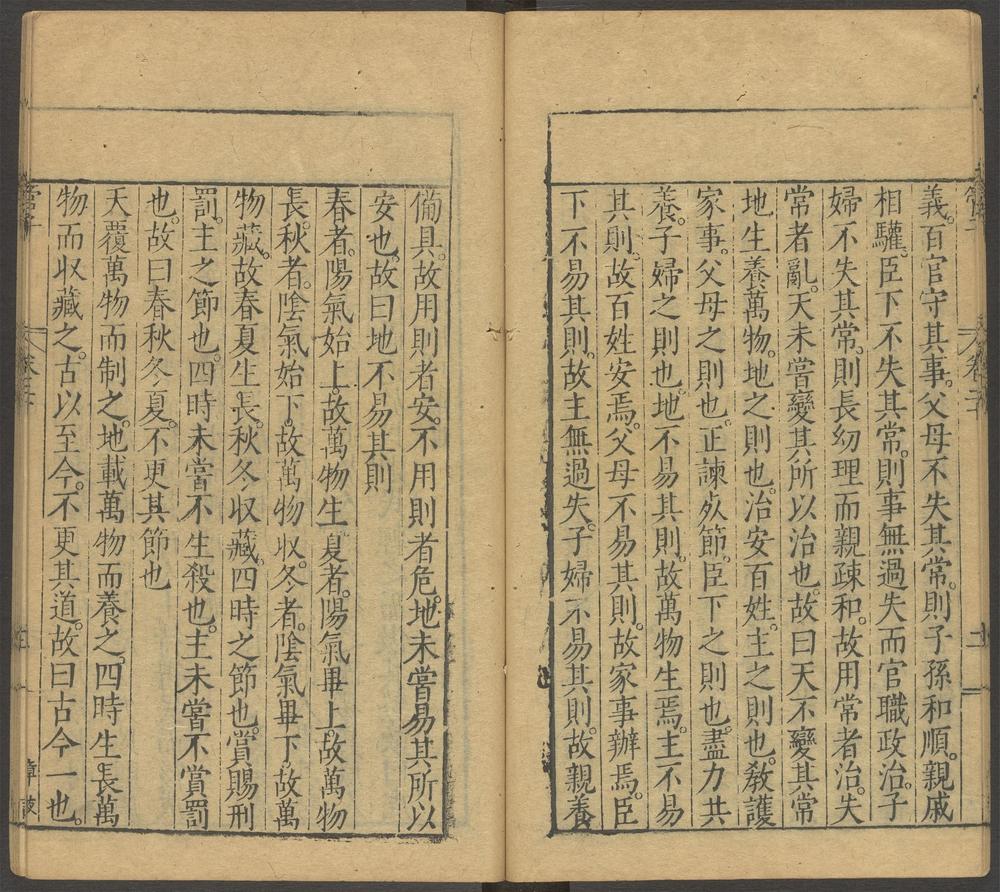 義。百官守其事。父母不失其常。則子孫和順。親戚
相驩。臣下不失其常。則事無過失而官職政治。子
婦不失其常。則長幼理而親踈和。故用常者治。失
常者亂。天未嘗變其所以治也。故曰天不變其常
地生養萬物。地之則也。治安百姓。主之則也。敎護
家事。父母之則也。正諫死節。臣下之則也。盡力共
養。子婦之則也。地不易其則。故萬物生焉。主不易
其則。故百姓安焉。父母不易其則。故家事辦焉。臣
下不易其則。故主無過失。子婦不易其則。故親養
備具。故用則者安。不用則者危。地未嘗易其所以
安也。故曰地不易其則
春者。陽氣始上。故萬物生。夏者。陽氣畢上。故萬物
長。秋者。陰氣始下。故萬物收。冬者。陰氣畢下。故萬
物藏。故春夏生長。秋冬收藏。四時之節也。賞賜刑
罰。主之節也。四時未嘗不生殺也。主未嘗不賞罰
也。故曰春秋冬夏。不更其節也
天覆萬物而制之。地載萬物而養之。四時生長萬
物而収藏之。古以至今。不更其道。故曰古今一也。